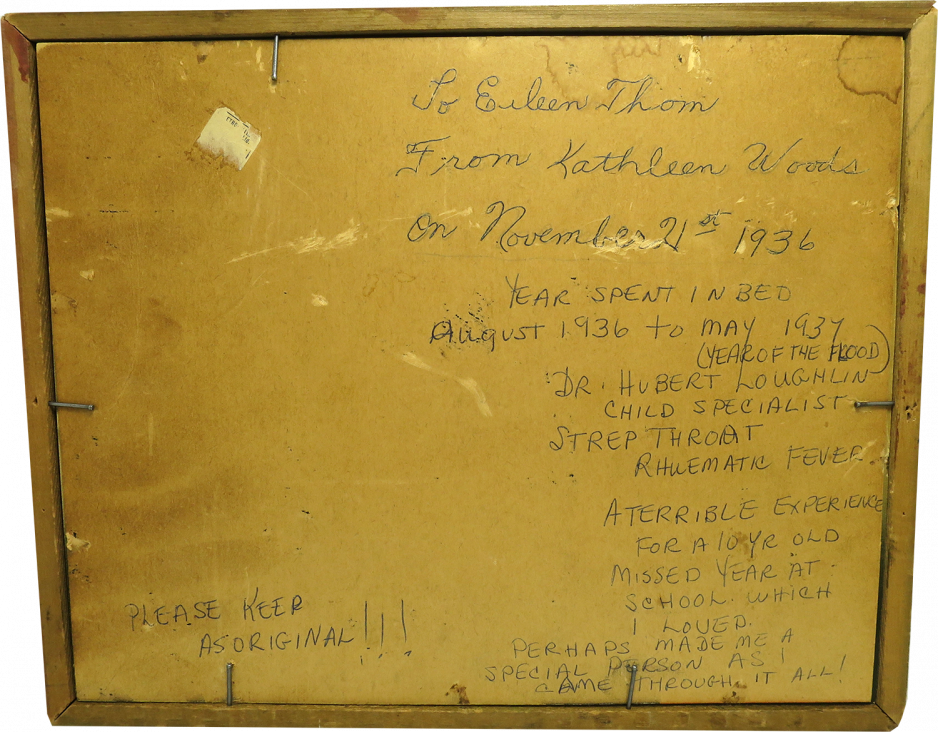 To Eileen Thom
From Kathleen Woods
On November 21st 1936
YEAR SPENT IN BED
AUGUST 1936 to MAY 1937
(YEAR OF THE FLOOD)
DR. HUBERT LOUGHLIN
CHILD SPECIALIST
STREP THROAT
RHUEMATIC FEVER
A TERRIBLE EXPERIENCE
FOR A 10 YR OLD
MISSED YEAR AT
SCHOOL WHICH
I LOVED.
PERHAPS MADE ME A
SPECIAL PERSON AS I
CAME THROUGH IT ALL!
PLEASE KEEP
AS ORIGINAL!!!